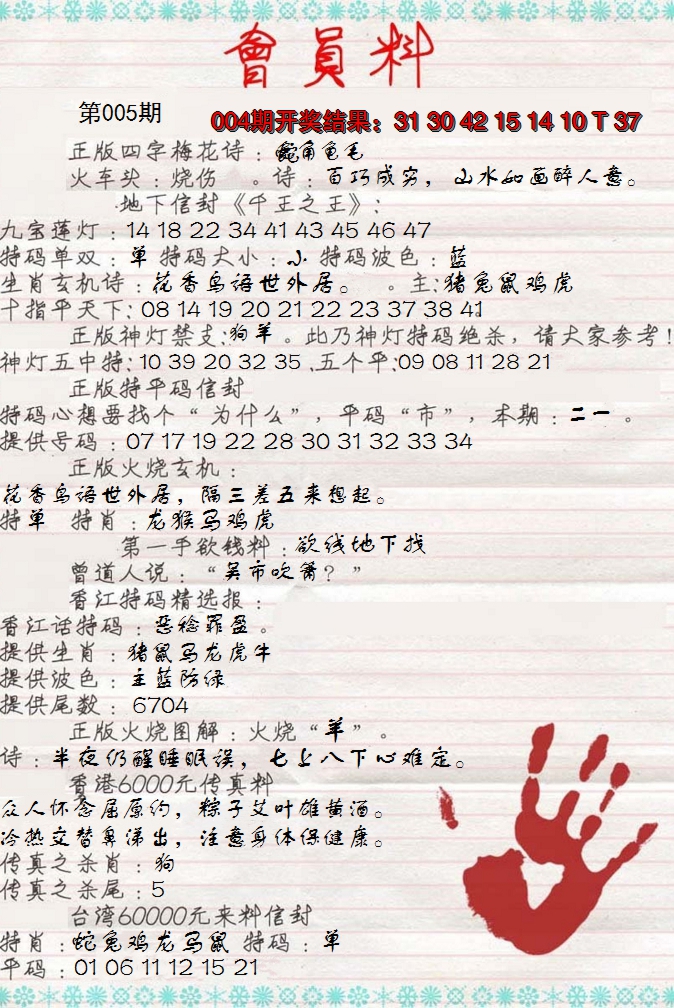 會員料
第005期
004期开奖结果：31 30 42 15 14 10 T 37
正版四字梅花诗：兔角龟毛
火车头：烧伤 。诗：百巧成穷，山水如画醉人意。
地下信封《千王之王》：
九宝莲灯：14 18 22 34 41 43 45 46 47
特码单双：单 特码大小：小 特码波色：蓝
生肖玄机诗：花香鸟语世外居。 。主：猪兔鼠鸡虎
十指平天下：08 14 19 20 21 22 23 37 38 41
正版神灯禁支：狗羊。此乃神灯特码绝杀，请大家参考！
神灯五中特：10 39 20 32 35 .五个平：09 08 11 28 21
正版特平码信封
特码心想要找个“为什么”，平码“市”，本期：二一。
提供号码：07 17 19 22 28 30 31 32 33 34
正版火烧玄机：
花香鸟语世外居，隔三差五来想起。
特单 特肖：龙猴马鸡虎
第一手欲钱料：欲钱地下找
曾道人说：“吴市吹箫？”
香江特码精选报：
香江话特码：恶稔罪盈。
提供生肖：猪鼠马龙虎牛
提供波色：主蓝防绿
提供尾数：6704
正版火烧图解：火烧“羊”。
诗：半夜仍醒睡眠误，七上八下心难定。
香港6000元传真料
众人怀念屈原约，粽子艾叶雄黄酒。
冷热交替鼻涕出，注意身体保健康。
传真之杀肖：狗
传真之杀尾：5
台湾60000元来料信封
特肖：蛇兔鸡龙马鼠 特码：单
平码：01 06 11 12 15 21